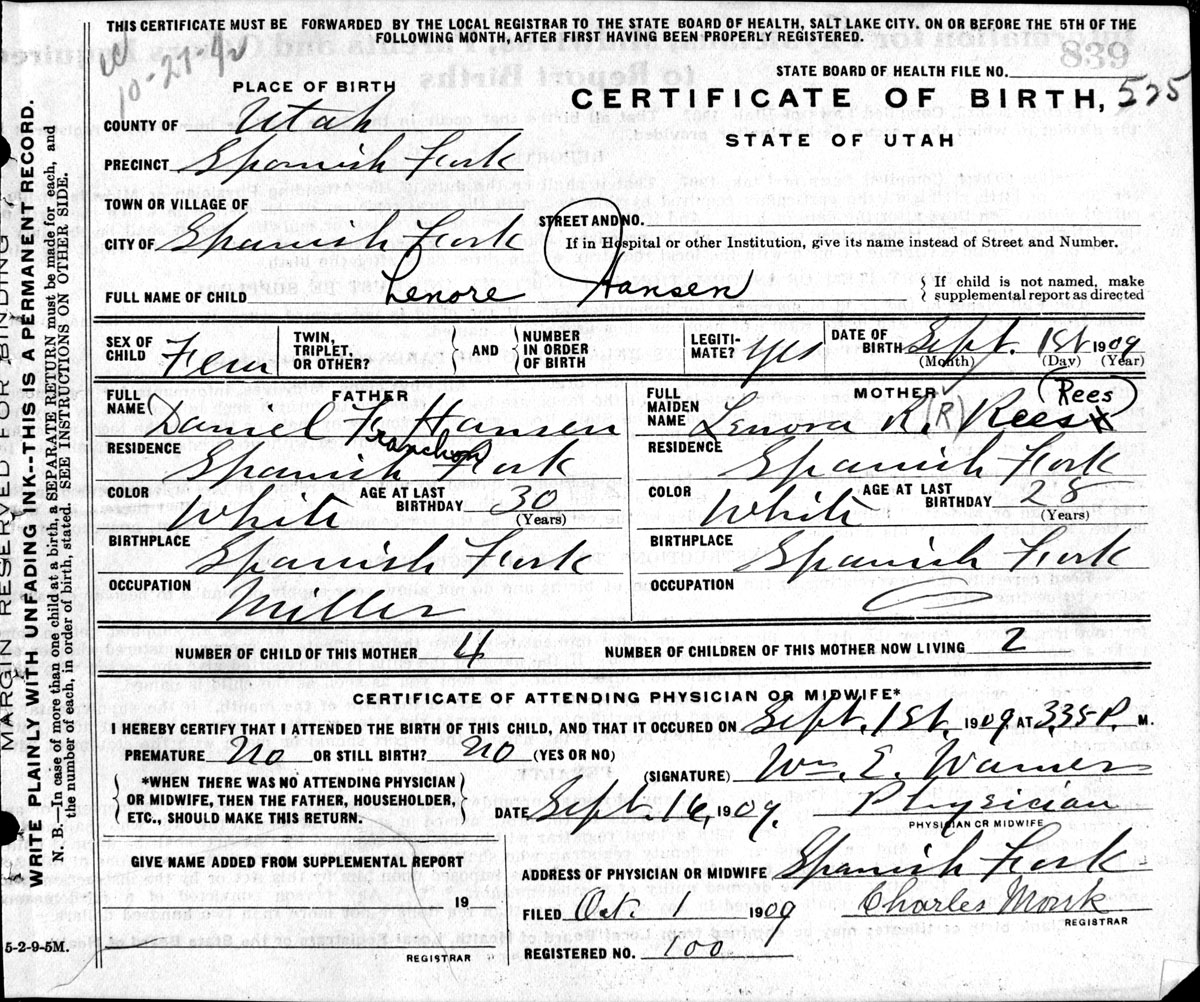 THIS CERTIFICATE MUST BE FORWARDED BY THE LOCAL REGISTRAR TO THE STATE BOARD OF HEALTH, SALT LAKE CITY, ON OR BEFORE THE 5TH OF THE
FOLLOWING MONTH, AFTER FIRST HAVING BEEN PROPERLY REGISTERED.
10-27-42
839
STATE BOARD OF HEALTH FILE NO.
PLACE OF BIRTH
CERTIFICATE OF BIRTH, 525
STATE OF UTAH
COUNTY OF Utah
PRECINCT Spanish Fork
TOWN OR VILLAGE OF
STREET AND NO.
CITY OF Spanish Fork
If in Hospital or other Institution, give its name instead of Street and Number.
FULL NAME OF CHILD Lenore Hansen
If child is not named, make
supplemental report as directed
SEX OF CHILD Fem
TWIN, TRIPLET, OR OTHER? AND NUMBER IN ORDER OF BIRTH
LEGITI- MATE? Yes
DATE OF BIRTH Sept. 1st 1909
(Month) (Day) (Year)
FATHER
FULL NAME Daniel F. Hansen
Franchon
RESIDENCE Spanish Fork
COLOR White AGE AT LAST BIRTHDAY 30
(Years)
BIRTHPLACE Spanish Fork
OCCUPATION Miller
MOTHER
(Rees)
FULL MAIDEN NAME Lenora R. (R) Rees
RESIDENCE Spanish Fork
COLOR White AGE AT LAST BIRTHDAY 28
(Years)
BIRTHPLACE Spanish Fork
OCCUPATION
NUMBER OF CHILD OF THIS MOTHER 4 NUMBER OF CHILDREN OF THIS MOTHER NOW LIVING 2
CERTIFICATE OF ATTENDING PHYSICIAN OR MIDWIFE*
I HEREBY CERTIFY THAT I ATTENDED THE BIRTH OF THIS CHILD, AND THAT IT OCCURED ON Sept. 1st. 1909 AT 335 P M.
PREMATURE No OR STILL BIRTH? No (YES OR NO)
*WHEN THERE WAS NO ATTENDING PHYSICIAN
OR MIDWIFE, THEN THE FATHER, HOUSEHOLDER,
ETC., SHOULD MAKE THIS RETURN.
(SIGNATURE) Wm. E. Warner
DATE Sept. 16, 1909. Physician
PHYSICIAN OR MIDWIFE
GIVE NAME ADDED FROM SUPPLEMENTAL REPORT
19
REGISTRAR
ADDRESS OF PHYSICIAN OR MIDWIFE Spanish Fork
FILED Oct. 1 1909 Charles Monk
REGISTRAR
REGISTERED NO. 100
5-2-9-5M.
MARGIN RESERVED FOR BINDING
WRITE PLAINLY WITH UNFADING INK--THIS IS A PERMANENT RECORD.
N. B.—In case of more than one child at a birth, a SEPARATE RETURN must be made for each, and
the number of each, in order of birth, stated. SEE INSTRUCTIONS ON OTHER SIDE.